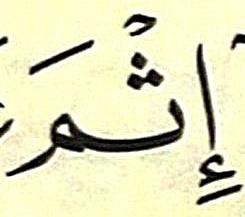 إِثْمَ